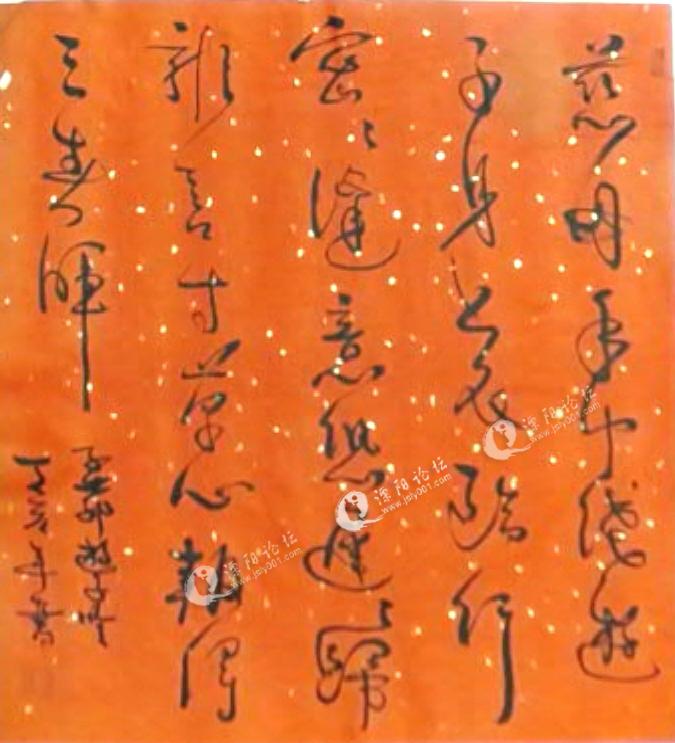 慈母手中綫遊
子身上衣臨行
密々縫意恐遲々歸
誰言寸草心報得
三春暉
孟郊遊子吟
丁亥年
溧阳论坛
www.jsly001.com
溧阳论坛
www.jsly001.com
溧阳论坛
www.jsly001.com